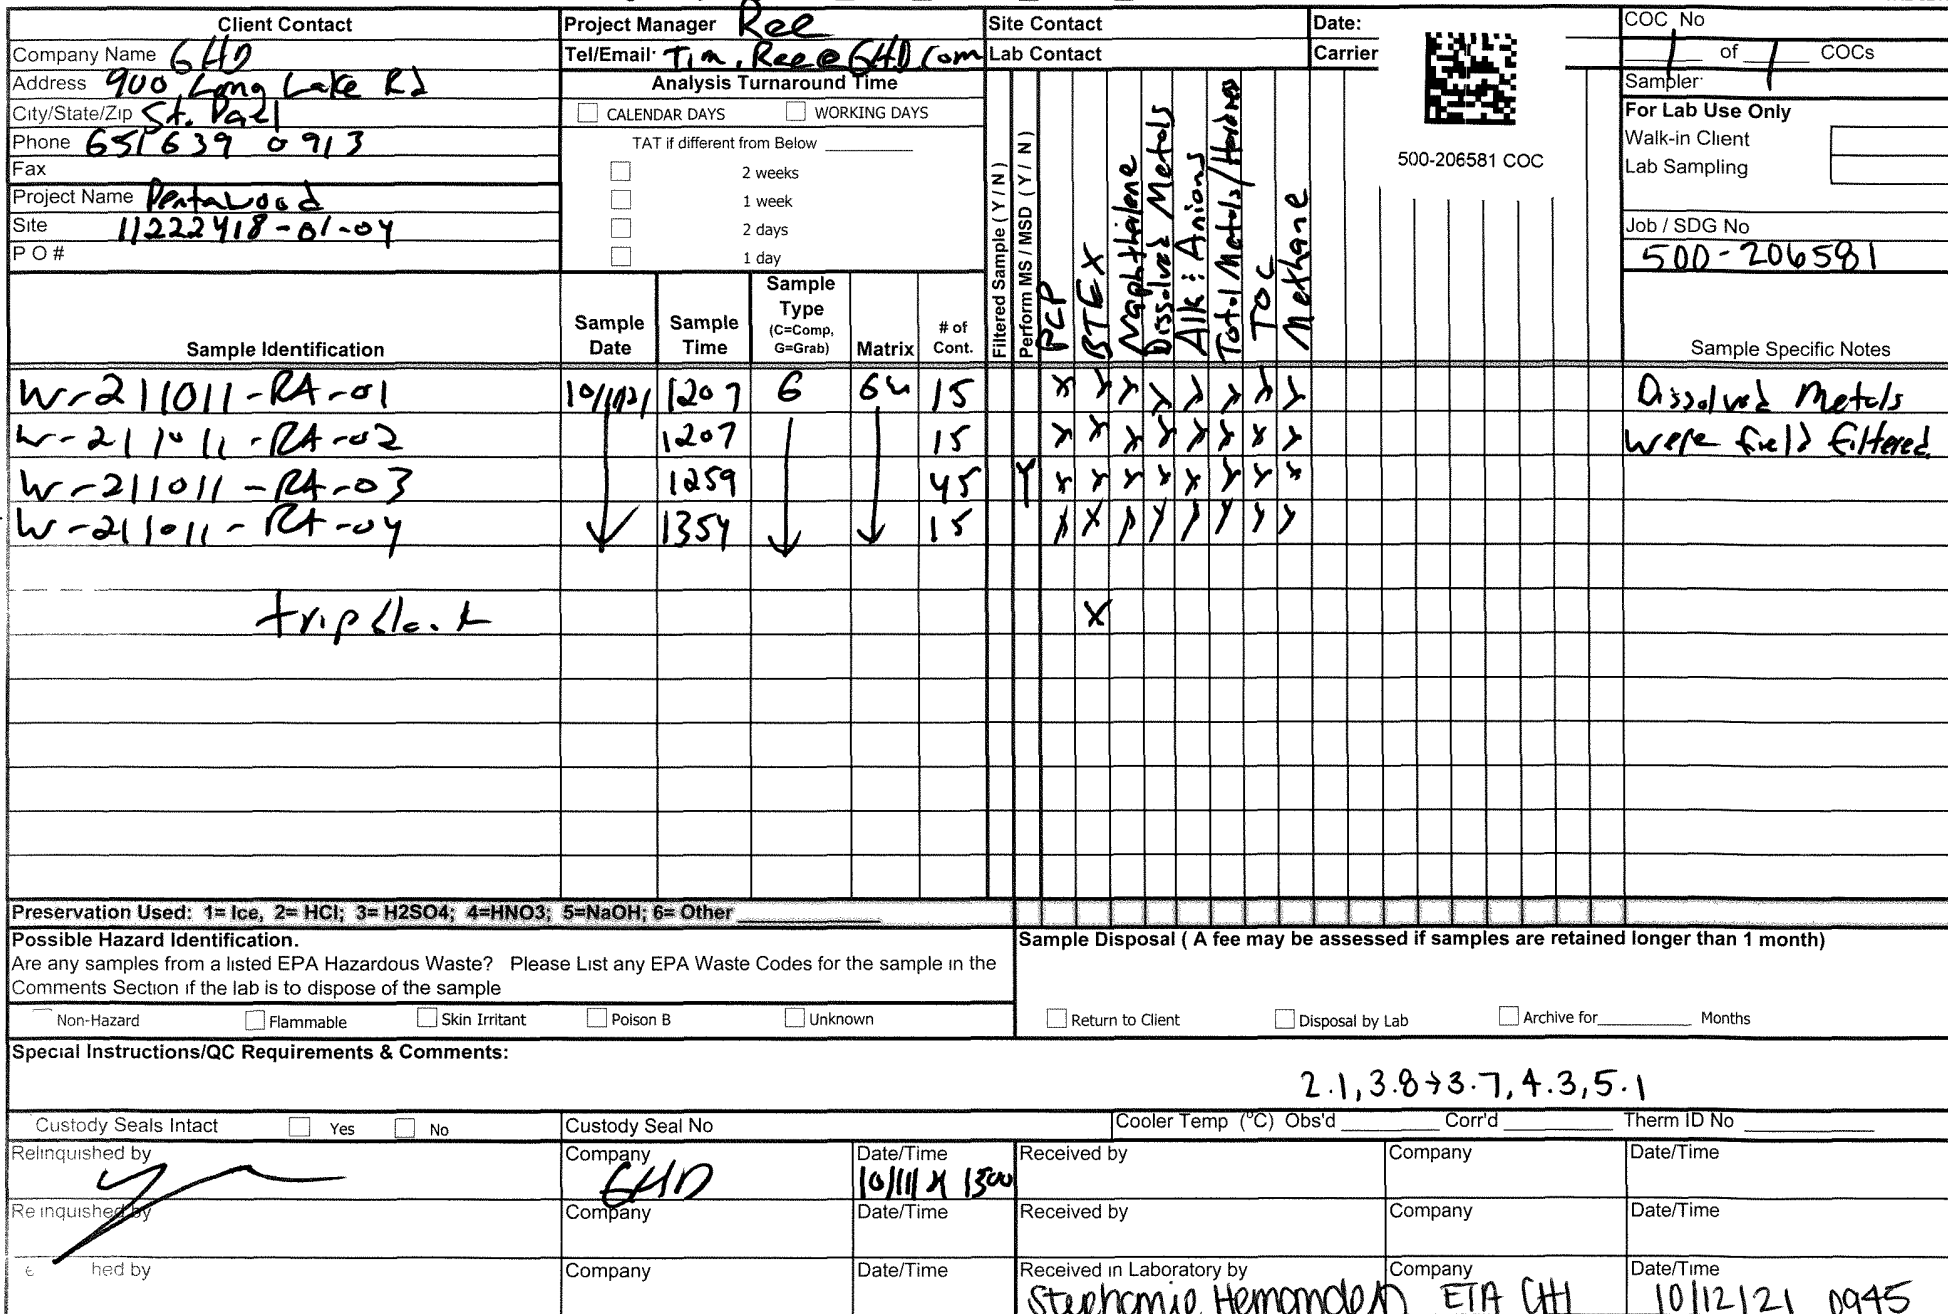 Client Contact
Company Name GHD
Address 900 Long Lake Rd
City/State/Zip St. Paul
Phone 651 639 0913
Fax
Project Name Pentawood
Site 11222418-01-04
P O #
Project Manager Ree
Tel/Email: Tim.Ree@GHD.com
Analysis Turnaround Time
CALENDAR DAYS WORKING DAYS
TAT if different from Below
2 weeks
1 week
2 days
1 day
Site Contact
Lab Contact
Date:
Carrier
500-206581 COC
COC No
1 of 1 COCs
Sampler:
For Lab Use Only
Walk-in Client
Lab Sampling
Job / SDG No
500-206581
Sample Identification
Sample Date
Sample Time
Sample Type (C=Comp, G=Grab)
Matrix
# of Cont.
Filtered Sample ( Y / N )
Perform MS / MSD ( Y / N )
PCP
BTEX
Naphthalene
Dissolved Metals
Alk : Anions
Total Metals/Hardness
TOC
Methane
Sample Specific Notes
W-211011-RA-01 10/11/21 1207 G GW 15 X X X X X X X X Dissolved Metals
W-211011-RA-02 1207 15 X X X X X X X X were field filtered
W-211011-RA-03 1259 45 Y X X X X X X X X
W-211011-RA-04 1354 15 X X X X X X X X
trip blank X
Preservation Used: 1= Ice, 2= HCl; 3= H2SO4; 4=HNO3; 5=NaOH; 6= Other
Possible Hazard Identification.
Are any samples from a listed EPA Hazardous Waste? Please List any EPA Waste Codes for the sample in the
Comments Section if the lab is to dispose of the sample
Non-Hazard Flammable Skin Irritant Poison B Unknown
Sample Disposal ( A fee may be assessed if samples are retained longer than 1 month)
Return to Client Disposal by Lab Archive for Months
Special Instructions/QC Requirements & Comments:
2.1, 3.8→3.7, 4.3, 5.1
Custody Seals Intact Yes No Custody Seal No Cooler Temp (°C) Obs'd Corr'd Therm ID No
Relinquished by Company GHD Date/Time 10/11/21 1500 Received by Company Date/Time
Relinquished by Company Date/Time Received by Company Date/Time
hed by Company Date/Time Received in Laboratory by Stephanie Hernandez Company ETA CHI Date/Time 10/12/21 0945